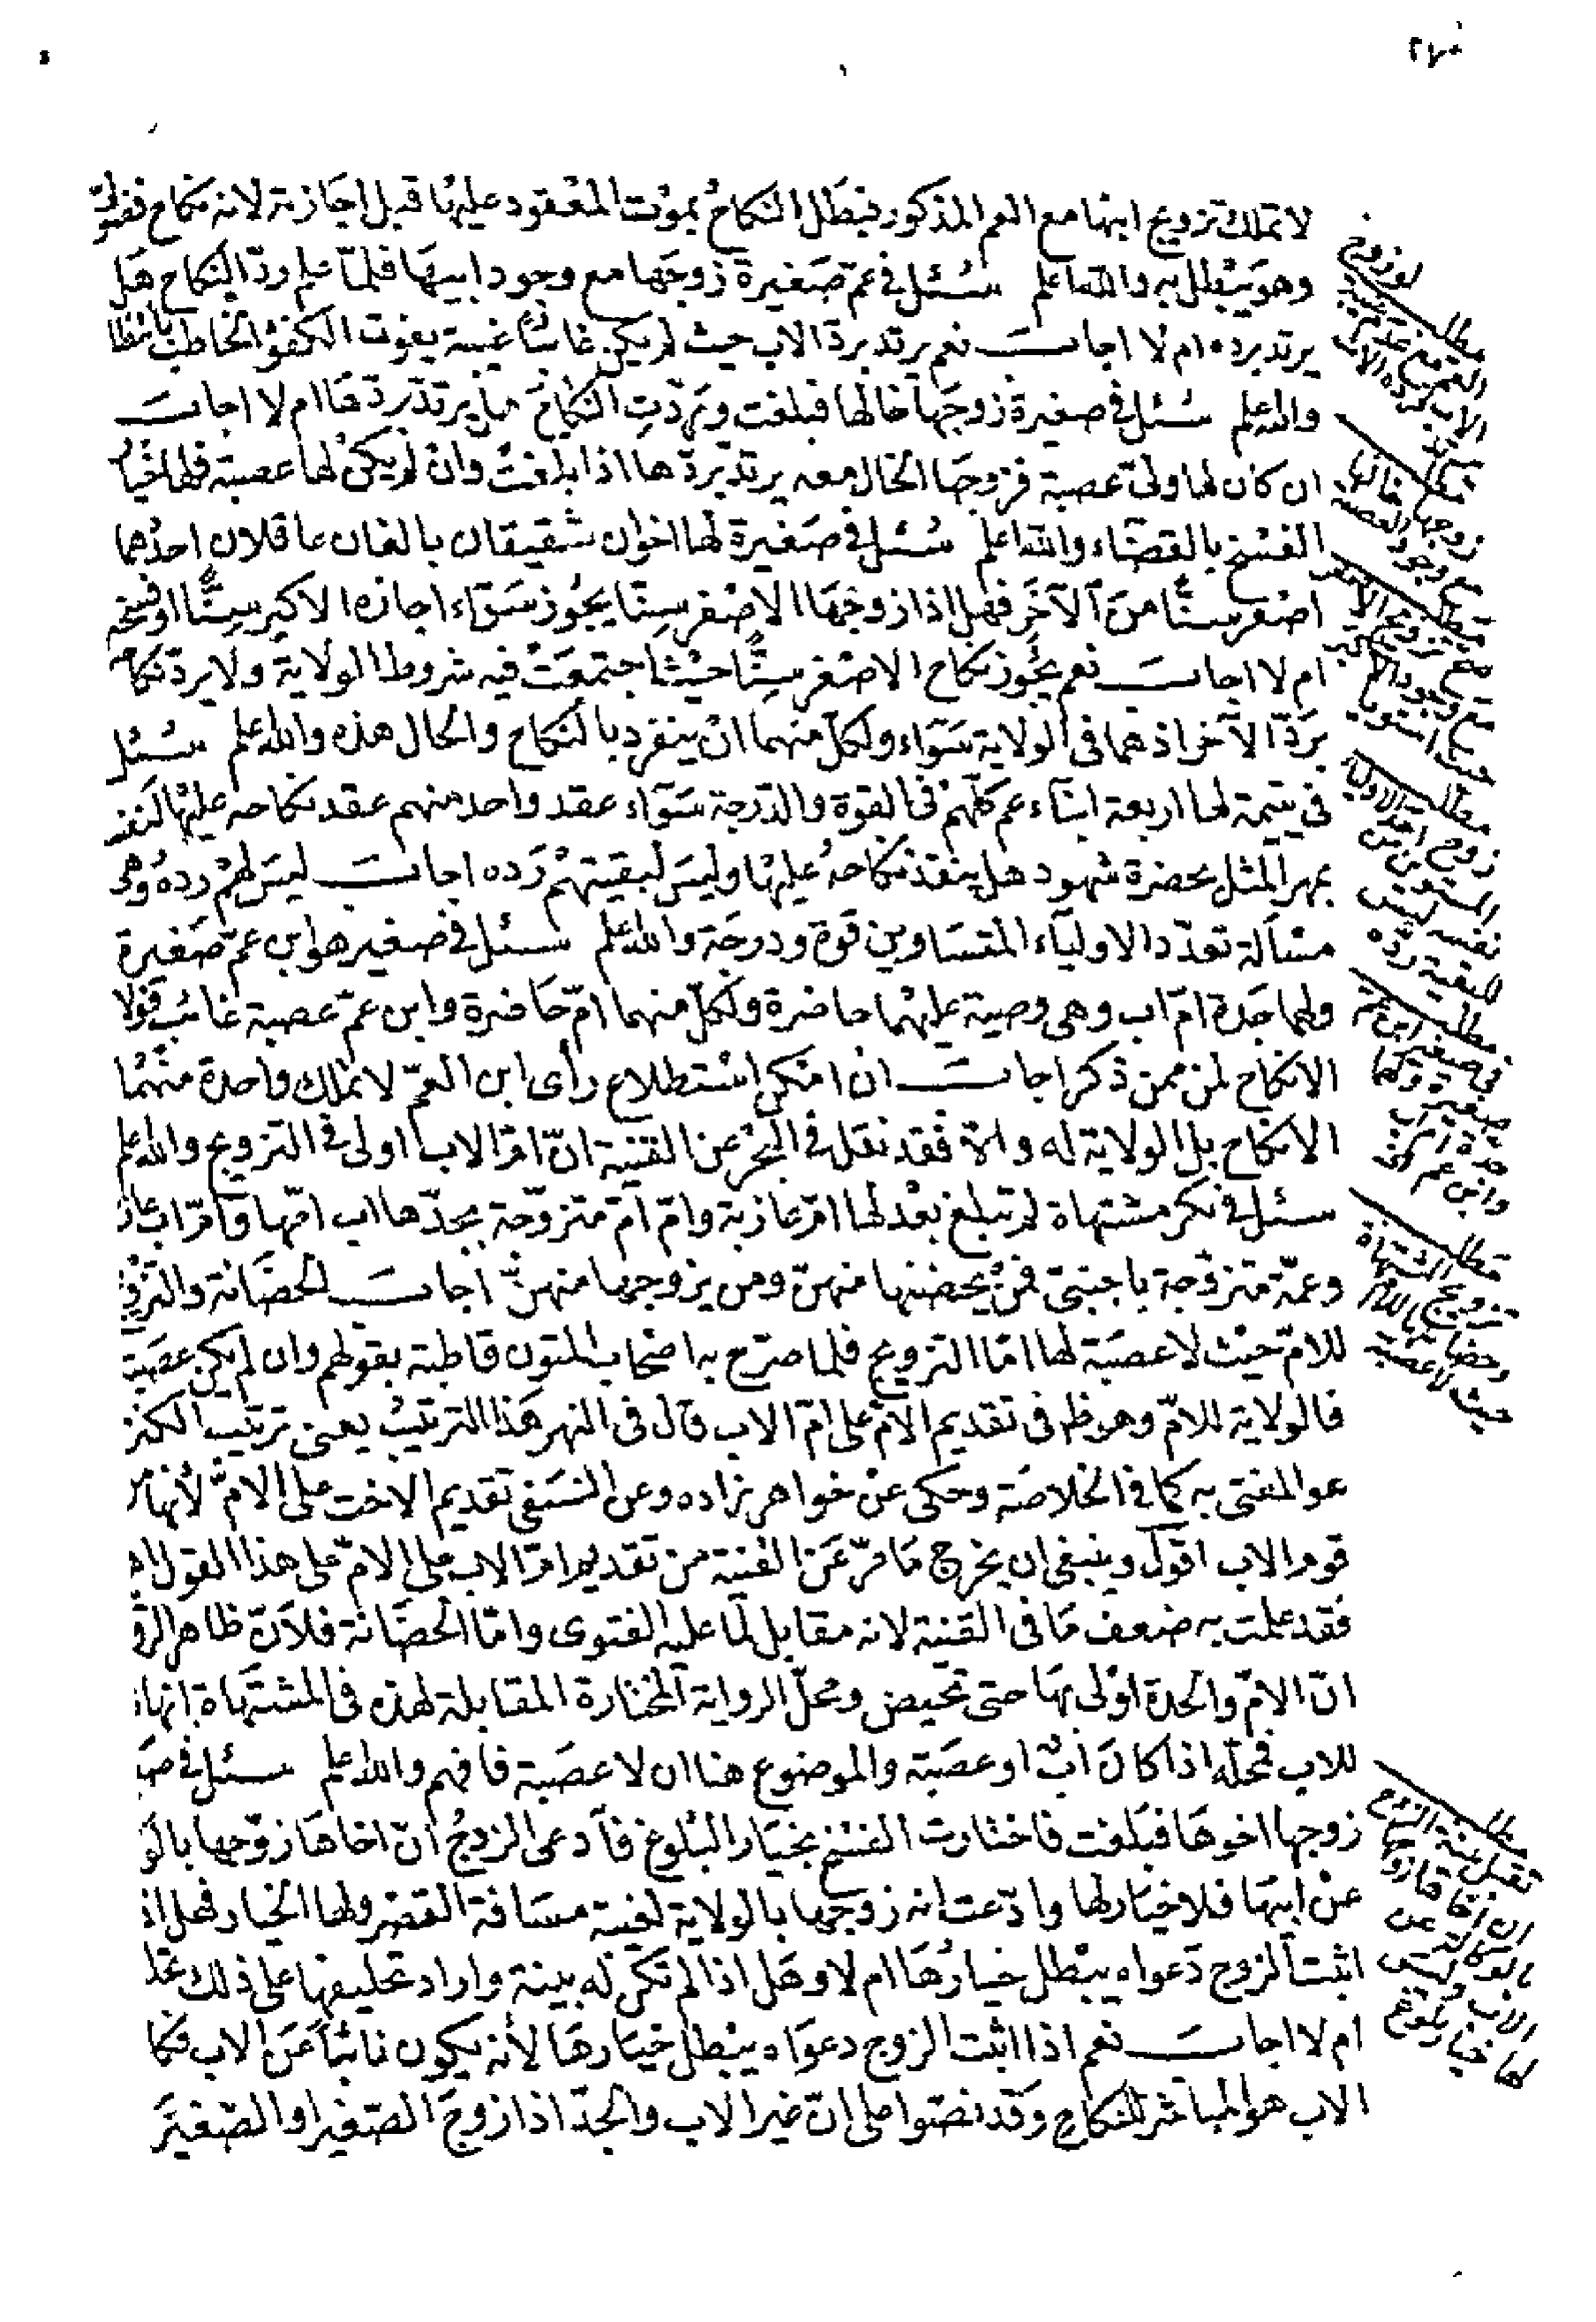 لا تملك تزويج ابنها مع العم المذكور فبطل النكاح بموت المعقود عليها قبل اجازته لانه نكاح فضولى
وهو يبطل به والله اعلم سئل فى عم صغيرة زوجها مع وجود ابيها فلما علم رد النكاح هل
يرتد برده ام لا اجاب نعم يرتد برد الاب حيث لم يكن غائبا غيبة يفوت الكفؤ الخاطب بانتظا
والله اعلم سئل فى صغيرة زوجها خالها فبلغت وردت النكاح هل يرتد بردها ام لا اجاب
ان كان لها ولى عصبة فزوجها الخال معه يرتد بردها اذا بلغت وان لم يكن لها عصبة فلها خيار
الفسخ بالقضاء والله اعلم سئل فى صغيرة لها اخوان شقيقان بالغان عاقلان احدهما
اصغر سنا من الآخر فهل اذا زوجها الاصغر سنا يجوز سواء اجازه الاكبر سنا او فسخه
ام لا اجاب نعم يجوز نكاح الاصغر سنا حيث اجتمعت فيه شروط الولاية ولا يرد نكاحه
برد الآخر اذ هما فى الولاية سواء ولكل منهما ان ينفرد بالنكاح والحال هذه والله اعلم سئل
فى يتيمة لها اربعة ابناء عم كلهم فى القوة والدرجة سواء عقد واحد منهم عقد نكاحه عليها لنفسه
بمهر المثل بحضرة شهود هل ينفذ نكاحه عليها وليس لبقيتهم رده اجاب ليس لهم رده وهى
مسألة تعدد الاولياء المتساوين قوة ودرجة والله اعلم سئل فى صغير هو ابن عم صغيرة
ولهما جدة ام اب وهى وصية عليهما حاضرة ولكل منهما ام حاضرة وابن عم عصبة غائب فولا
الانكاح لمن ممن ذكر اجاب ان امكن استطلاع رأى ابن العم لا تملك واحدة منهما
الانكاح بل الولاية له والا فقد نقل فى البحر عن القنية ان ام الاب اولى فى التزويج والله اعلم
سئل فى بكر مشتهاة لم تبلغ بعد لها ام عازبة وام ام متزوجة بجدها اب امها وام اب عاز
وعمة متزوجة باجنبى فمن يحضنها منهن ومن يزوجها منهن اجاب الحضانة والتزو
للام حيث لا عصبة لها اما التزويج فلما صرح به اصحاب المتون قاطبة بقولهم وان لم يكن عصبة
فالولاية للام وهو ظ فى تقديم الام على ام الاب قال فى النهر هذا الترتيب يعنى ترتيب الكنز
هو المفتى به كما فى الخلاصة وحكى عن خواهر زاده وعن النسفى تقديم الاخت على الام لأنها من
قوم الاب اقول وينبغى ان يخرج ما مر عن القنية من تقديم ام الاب على الام على هذا القول اه
فقد علمت به ضعف ما فى القنية لانه مقابل لما عليه الفتوى واما الحضانة فلأن ظاهر الرو
ان الام والجدة اولى بها حتى تحيض ومحل الرواية المختارة المقابلة لهذه فى المشتهاة انها
للاب فمحله اذا كان اب او عصبة والموضوع هنا ان لا عصبة فافهم والله اعلم سئل فى ص
زوجها اخوها فبلغت فاختارت الفسخ بخيار البلوغ فآدعى الزوج ان اخاها زوجها بالو
عن ابيها فلا خيار لها وادعت انه زوجها بالولاية لغيبته مسافة القصر ولها الخيار فهل اذ
اثبت الزوج دعواه يبطل خيارها ام لا وهل اذا لم تكن له بينة واراد تحليفها على ذلك تحلف
ام لا اجاب نعم اذا اثبت الزوج دعواه يبطل خيارها لأنه يكون نائبا عن الاب فكا
الاب هو المباشر للنكاح وقد نصوا على ان غير الاب والجد اذا زوج الصغير او الصغير